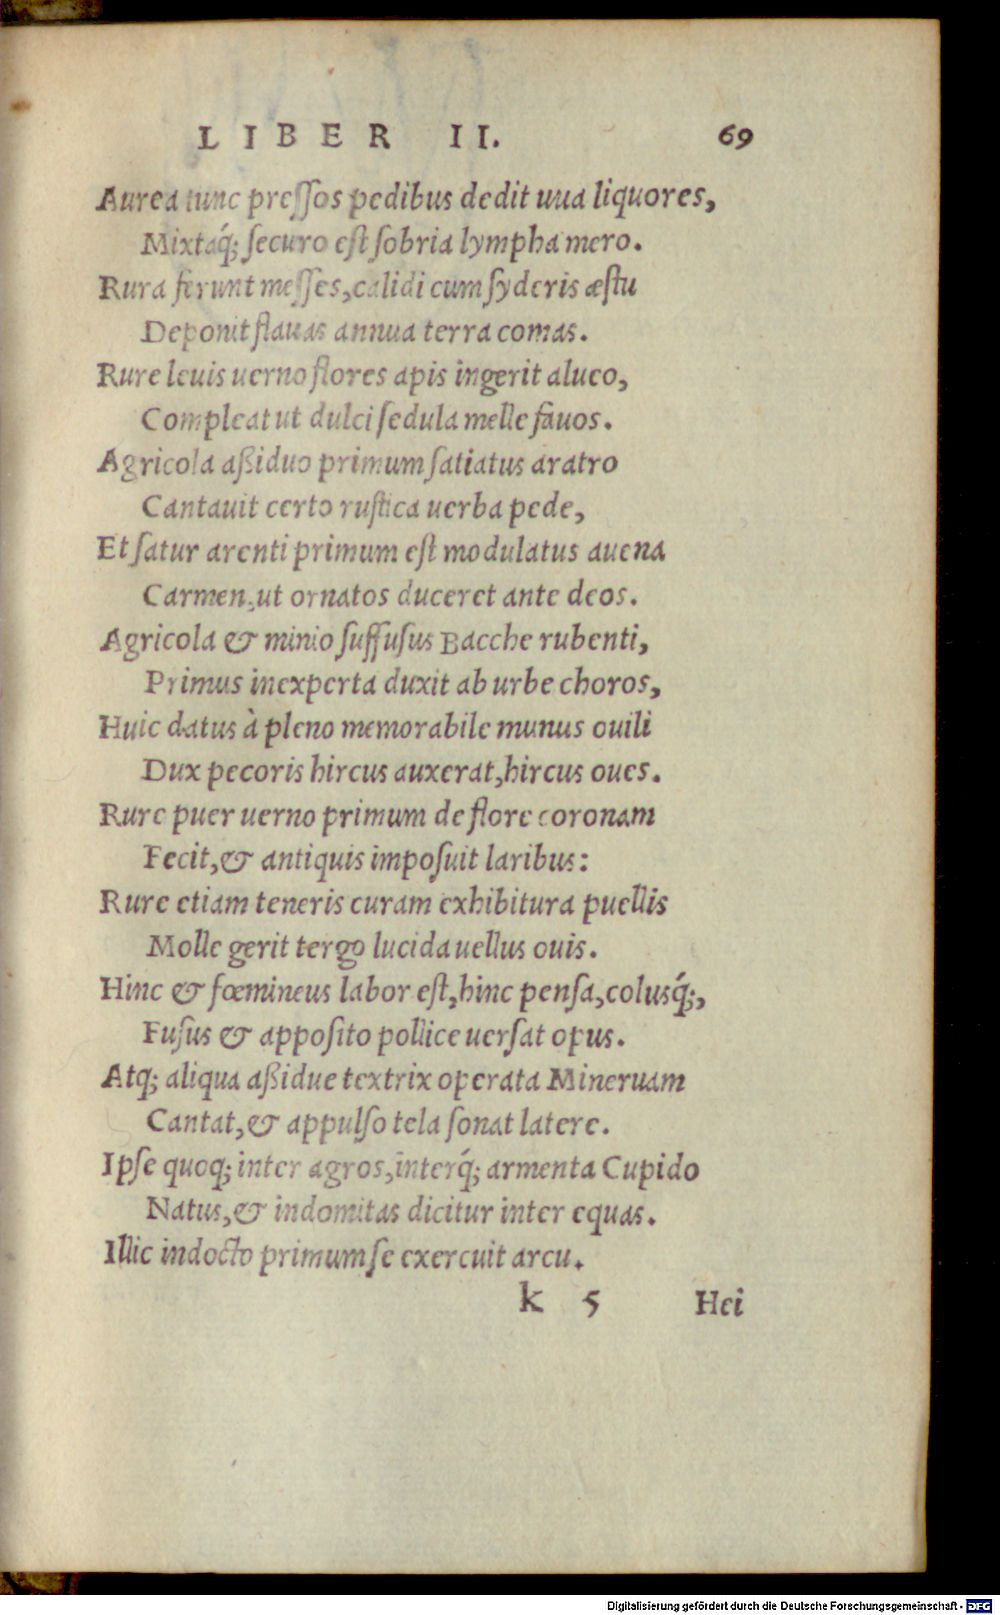 LIBER II. 69
Aurea tunc preſſos pedibus dedit uua liquores,
Mixtaq́; ſecuro eſt ſobria lympha mero.
Rura ferunt meſſes, calidi cum ſyderis æſtu
Deponit flauas annua terra comas.
Rure leuis uerno flores apis ingerit alueo,
Compleat ut dulci ſedula melle fauos.
Agricola aßiduo primum ſatiatus aratro
Cantauit certo ruſtica uerba pede,
Et ſatur arenti primum eſt modulatus auena
Carmen, ut ornatos duceret ante deos.
Agricola & minio ſuffuſus Bacche rubenti,
Primus inexperta duxit ab urbe choros,
Huic datus à pleno memorabile munus ouili
Dux pecoris hircus auxerat, hircus oues.
Rure puer uerno primum de flore coronam
Fecit, & antiquis impoſuit laribus:
Rure etiam teneris curam exhibitura puellis
Molle gerit tergo lucida uellus ouis.
Hinc & fœmineus labor eſt, hinc penſa, colusq́;,
Fuſus & appoſito pollice uerſat opus.
Atq; aliqua aßidue textrix operata Mineruam
Cantat, & appulſo tela ſonat latere.
Ipſe quoq; inter agros, interq́; armenta Cupido
Natus, & indomitas dicitur inter equas.
Illic indocto primum ſe exercuit arcu.
k 5 Hei
Digitalisierung gefördert durch die Deutsche Forschungsgemeinschaft - DFG